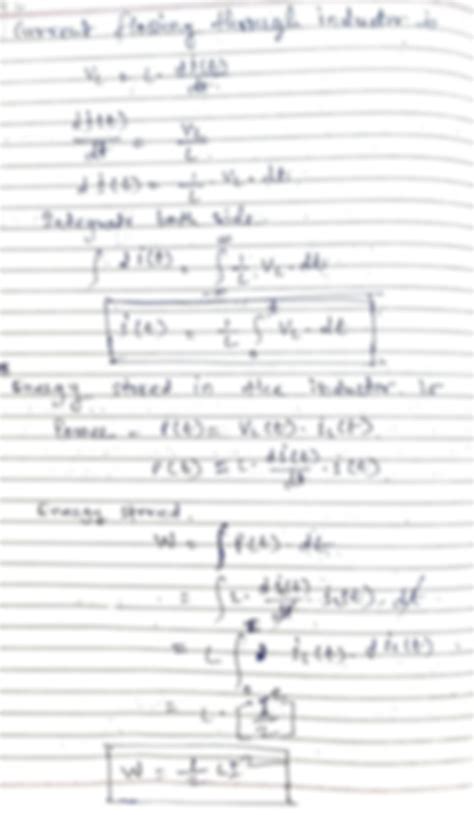 Current flowing through inductor is
V_L = L · di(t)/dt
di(t)/dt = V_L/L
di(t) = 1/L · V_L · dt
Integrate both side
∫ di(t) = ∫ 1/L · V_L · dt
i(t) = 1/L ∫ V_L · dt
Energy stored in the inductor is
Power = P(t) = V_L(t) · i_L(t)
P(t) = L · di(t)/dt · i(t)
Energy stored.
W = ∫ P(t) · dt
= ∫ L · di(t)/dt · i_L(t) · dt
= L ∫ i_L(t) · di_L(t)
= L ·
W = 1/2 LI²